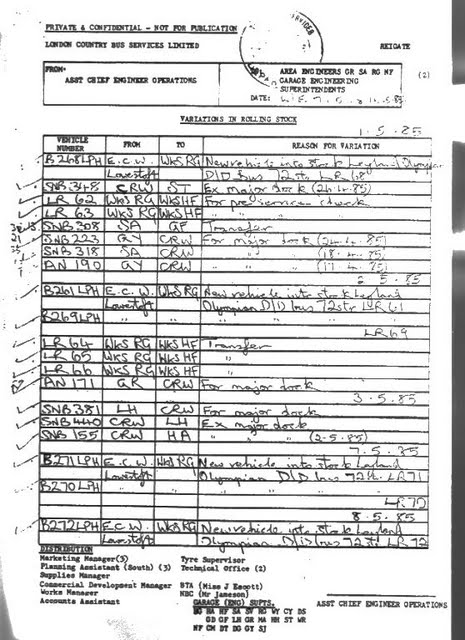 PRIVATE & CONFIDENTIAL - NOT FOR PUBLICATION
LONDON COUNTRY BUS SERVICES LIMITED
REIGATE
FROM:
ASST CHIEF ENGINEER OPERATIONS
AREA ENGINEERS GR SA RG NF
GARAGE ENGINEERING
SUPERINTENDENTS
(2)
DATE:
VARIATIONS IN ROLLING STOCK
1.5.85
VEHICLE NUMBER FROM TO REASON FOR VARIATION
B268LPH E.C.W. WKS RG New vehicle into stock Leyland Olympian
Lowestoft D/D bus 72str LR 68
SNB 348 CRW ST Ex major dock (24.4.85)
LR 62 WKS RG WKS HF For pre/service check
LR 63 WKS RG WKS HF " " "
SNB 308 SA GF Transfer
SNB 223 GY CRW For major dock (24.4.85)
SNB 318 SA CRW " " (18.4.85)
AN 190 GY CRW " " (17.4.85)
2.5.85
B261LPH E.C.W. WKS RG New vehicle into stock Leyland
Lowestoft Olympian D/D bus 72str LR 61
B269LPH " " " "
LR 69
LR 64 WKS RG WKS HF Transfer
LR 65 WKS RG WKS HF "
LR 66 WKS RG WKS HF "
AN 171 GR CRW For major dock
3.5.85
SNB 381 LH CRW For major dock
SNB 440 CRW LH Ex major dock
SNB 155 CRW HA " " " (2.5.85)
7.5.85
B271LPH E.C.W. WKS RG New vehicle into stock Leyland
Lowestoft Olympian D/D bus 72str LR 71
B270LPH " " " "
LR 70
8.5.85
B272LPH E.C.W. WKS RG New vehicle into stock Leyland
Lowestoft Olympian D/D bus 72str LR 72
DISTRIBUTION
Marketing Manager(3) Tyre Supervisor
Planning Assistant (South) (3) Technical Office (2)
Supplies Manager
Commercial Development Manager BTA (Miss J Escott)
Works Manager NBC (Mr Jameson)
Accounts Assistant GARAGE (ENG) SUPTS.
HA HF SA SV RG WY CY DS
GD GF LH GR MA HH ST WR
NF CM DT DG GY SJ
ASST CHIEF ENGINEER OPERATIONS